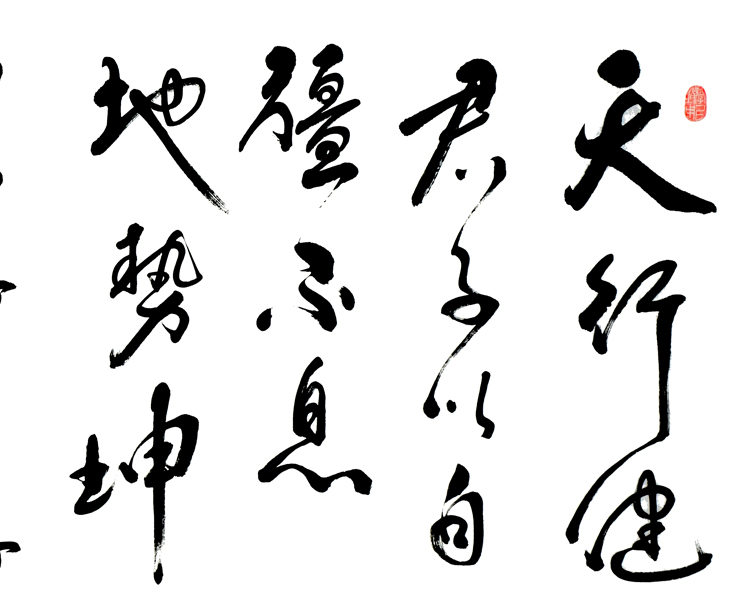 天行健
君子以自
彊不息
地势坤